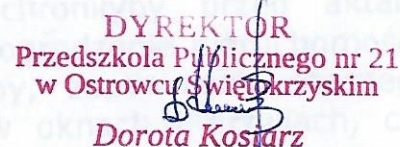 DYREKTOR
Przedszkola Publicznego nr 21
w Ostrowcu Świętokrzyskim
Dorota Kosiarz